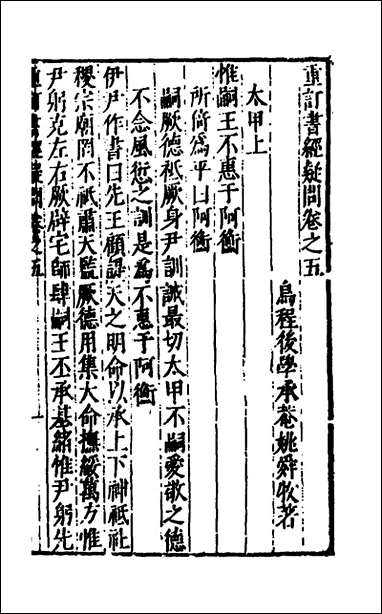 重訂書經疑問卷之五
烏程後學承菴姚舜牧著
太甲上
惟嗣王不惠于阿衡
所倚爲平曰阿衡
嗣厥德祗厥身尹訓誡最切太甲不嗣愛敬之德
不念風愆之訓是爲不惠于阿衡
伊尹作書曰先王顧諟天之明命以承上下神祗社
稷宗廟罔不祗肅天監厥德用集大命撫綏萬方惟
尹躬克左右厥辟宅師肆嗣王丕承基緒惟尹躬先
重訂書經疑問卷之五